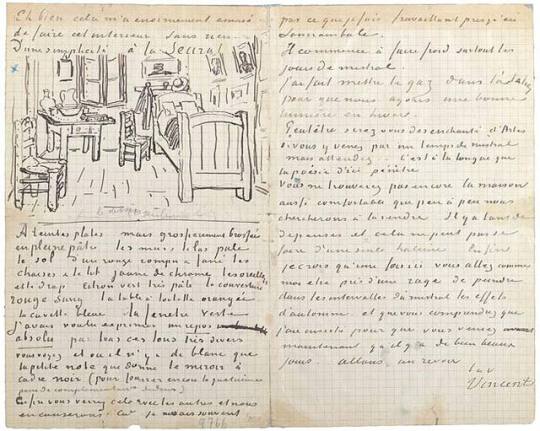 Eh bien cela m'a enormement amusé
de faire cet interieur sans rien.
D'une simplicité à la Seurat
A teintes plates mais grossierement brossées
en pleine pâte les murs lilas pale
le sol d'un rouge rompu & fané les
chaises & le lit jaune de chrome les oreillers
et le drap citron vert très pâle la couverture
rouge sang la table à toilette orangée
la cuvette bleue la fenetre verte
J'avais voulu exprimer un repos
absolu par tous ces tons très divers
vous voyez et où il n'y a de blanc que
la petite note que donne le miroir à
cadre noir (pour fourrer encore la quatrième
paire de complementaires dedans)
Enfin vous verrez cela avec les autres et nous
en causerons car je sais souvent
pas ce que je fais travaillant presqu'en
Somnambule.
Il commence à faire froid surtout les
jours de mistral.
J'ai fait mettre le gaz dans l'atelier
pour que nous ayons une bonne
lumière en hiver.
Peutêtre serez vous desenchanté d'Arles
si vous y venez par un temps de mistral
mais attendez.. C'est à la longue que
la poésie d'ici pénètre
vous ne trouverez pas encore la maison
aussi comfortable que peu à peu nous
chercherons à la rendre. Il y a tant de
depenses et cela ne peut pas se
faire d'une seule haleine. Enfin
je crois qu'une fois ici vous allez comme
moi être pris d'une rage de peindre
dans les intervalles du mistral les effets
d'automne. et que vous comprendrez que
j'ai insisté pour que vous veniez
maintenant qu'il y a de bien beaux
jours. allons, au revoir
Vincent